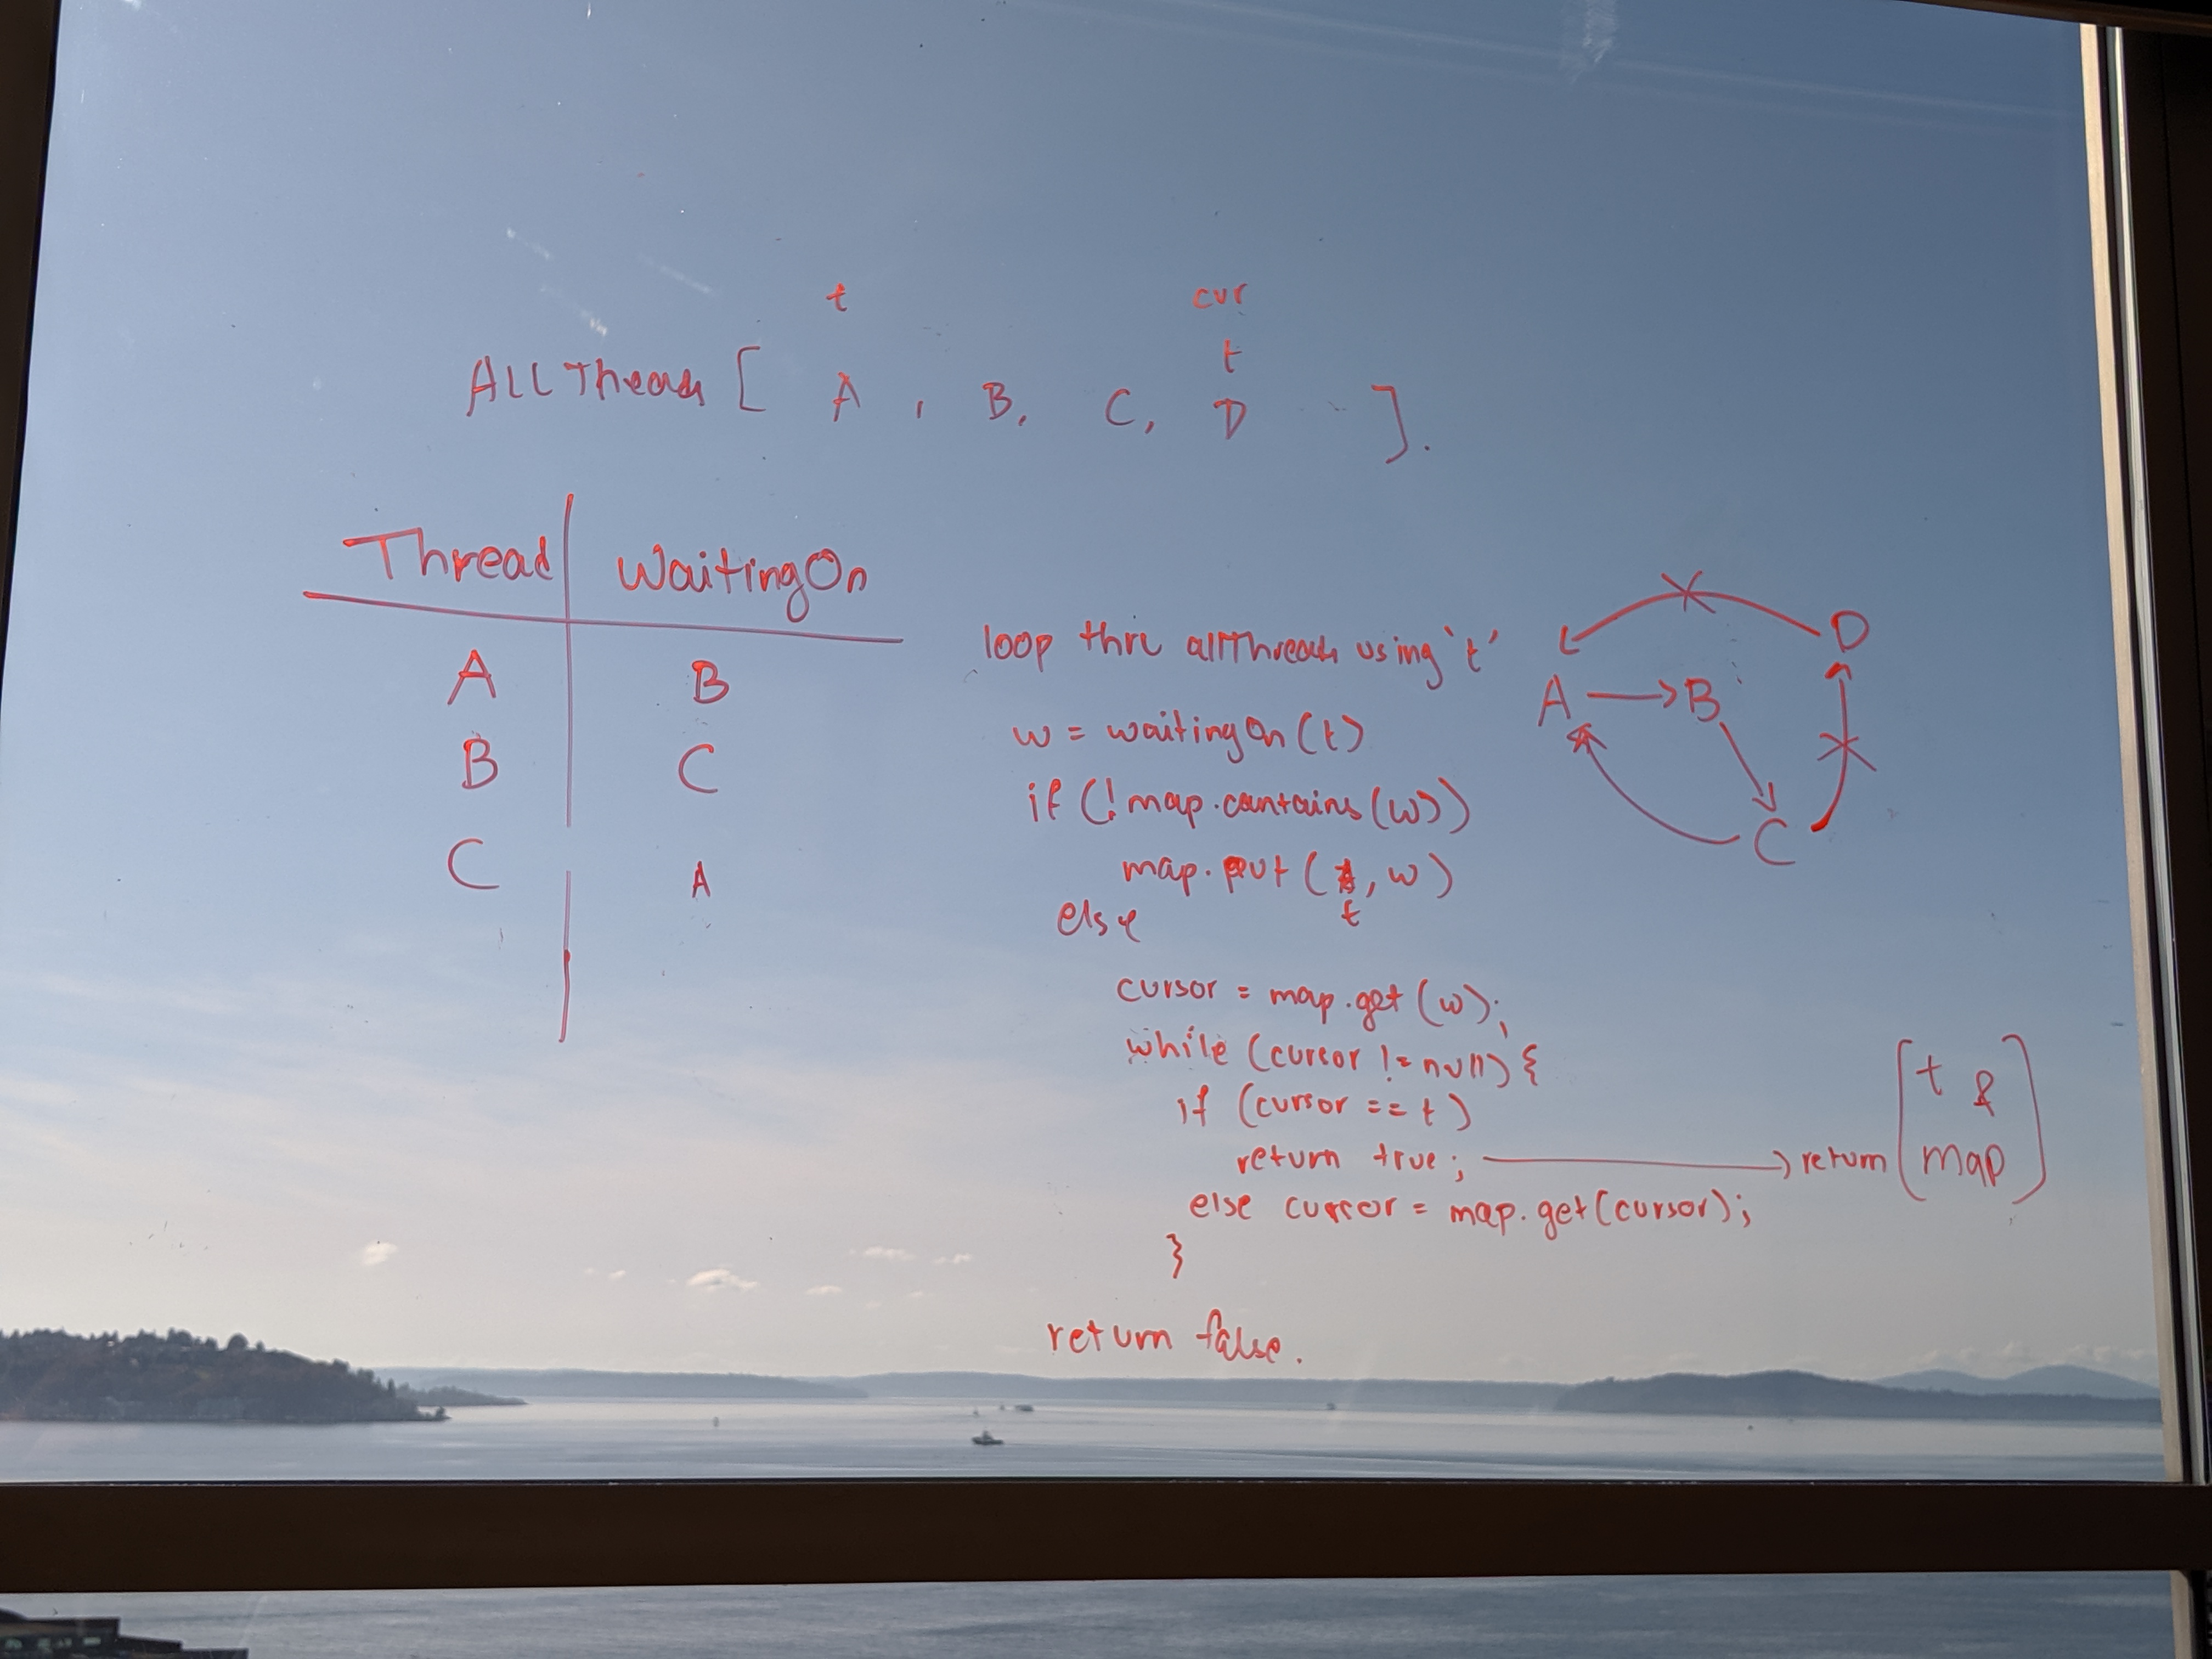 t
cur
t
ALL Threads [ A , B, C, D ].
Thread WaitingOn
A B
B C
C A
loop thru allThreads using 't'
w = waitingOn(t)
if (!map.contains(w))
map.put( , w)
t
else
cursor = map.get(w);
while (cursor != null) {
if (cursor == t)
return true; → return [t &
map]
else cursor = map.get(cursor);
}
return false.
D
A → B
C